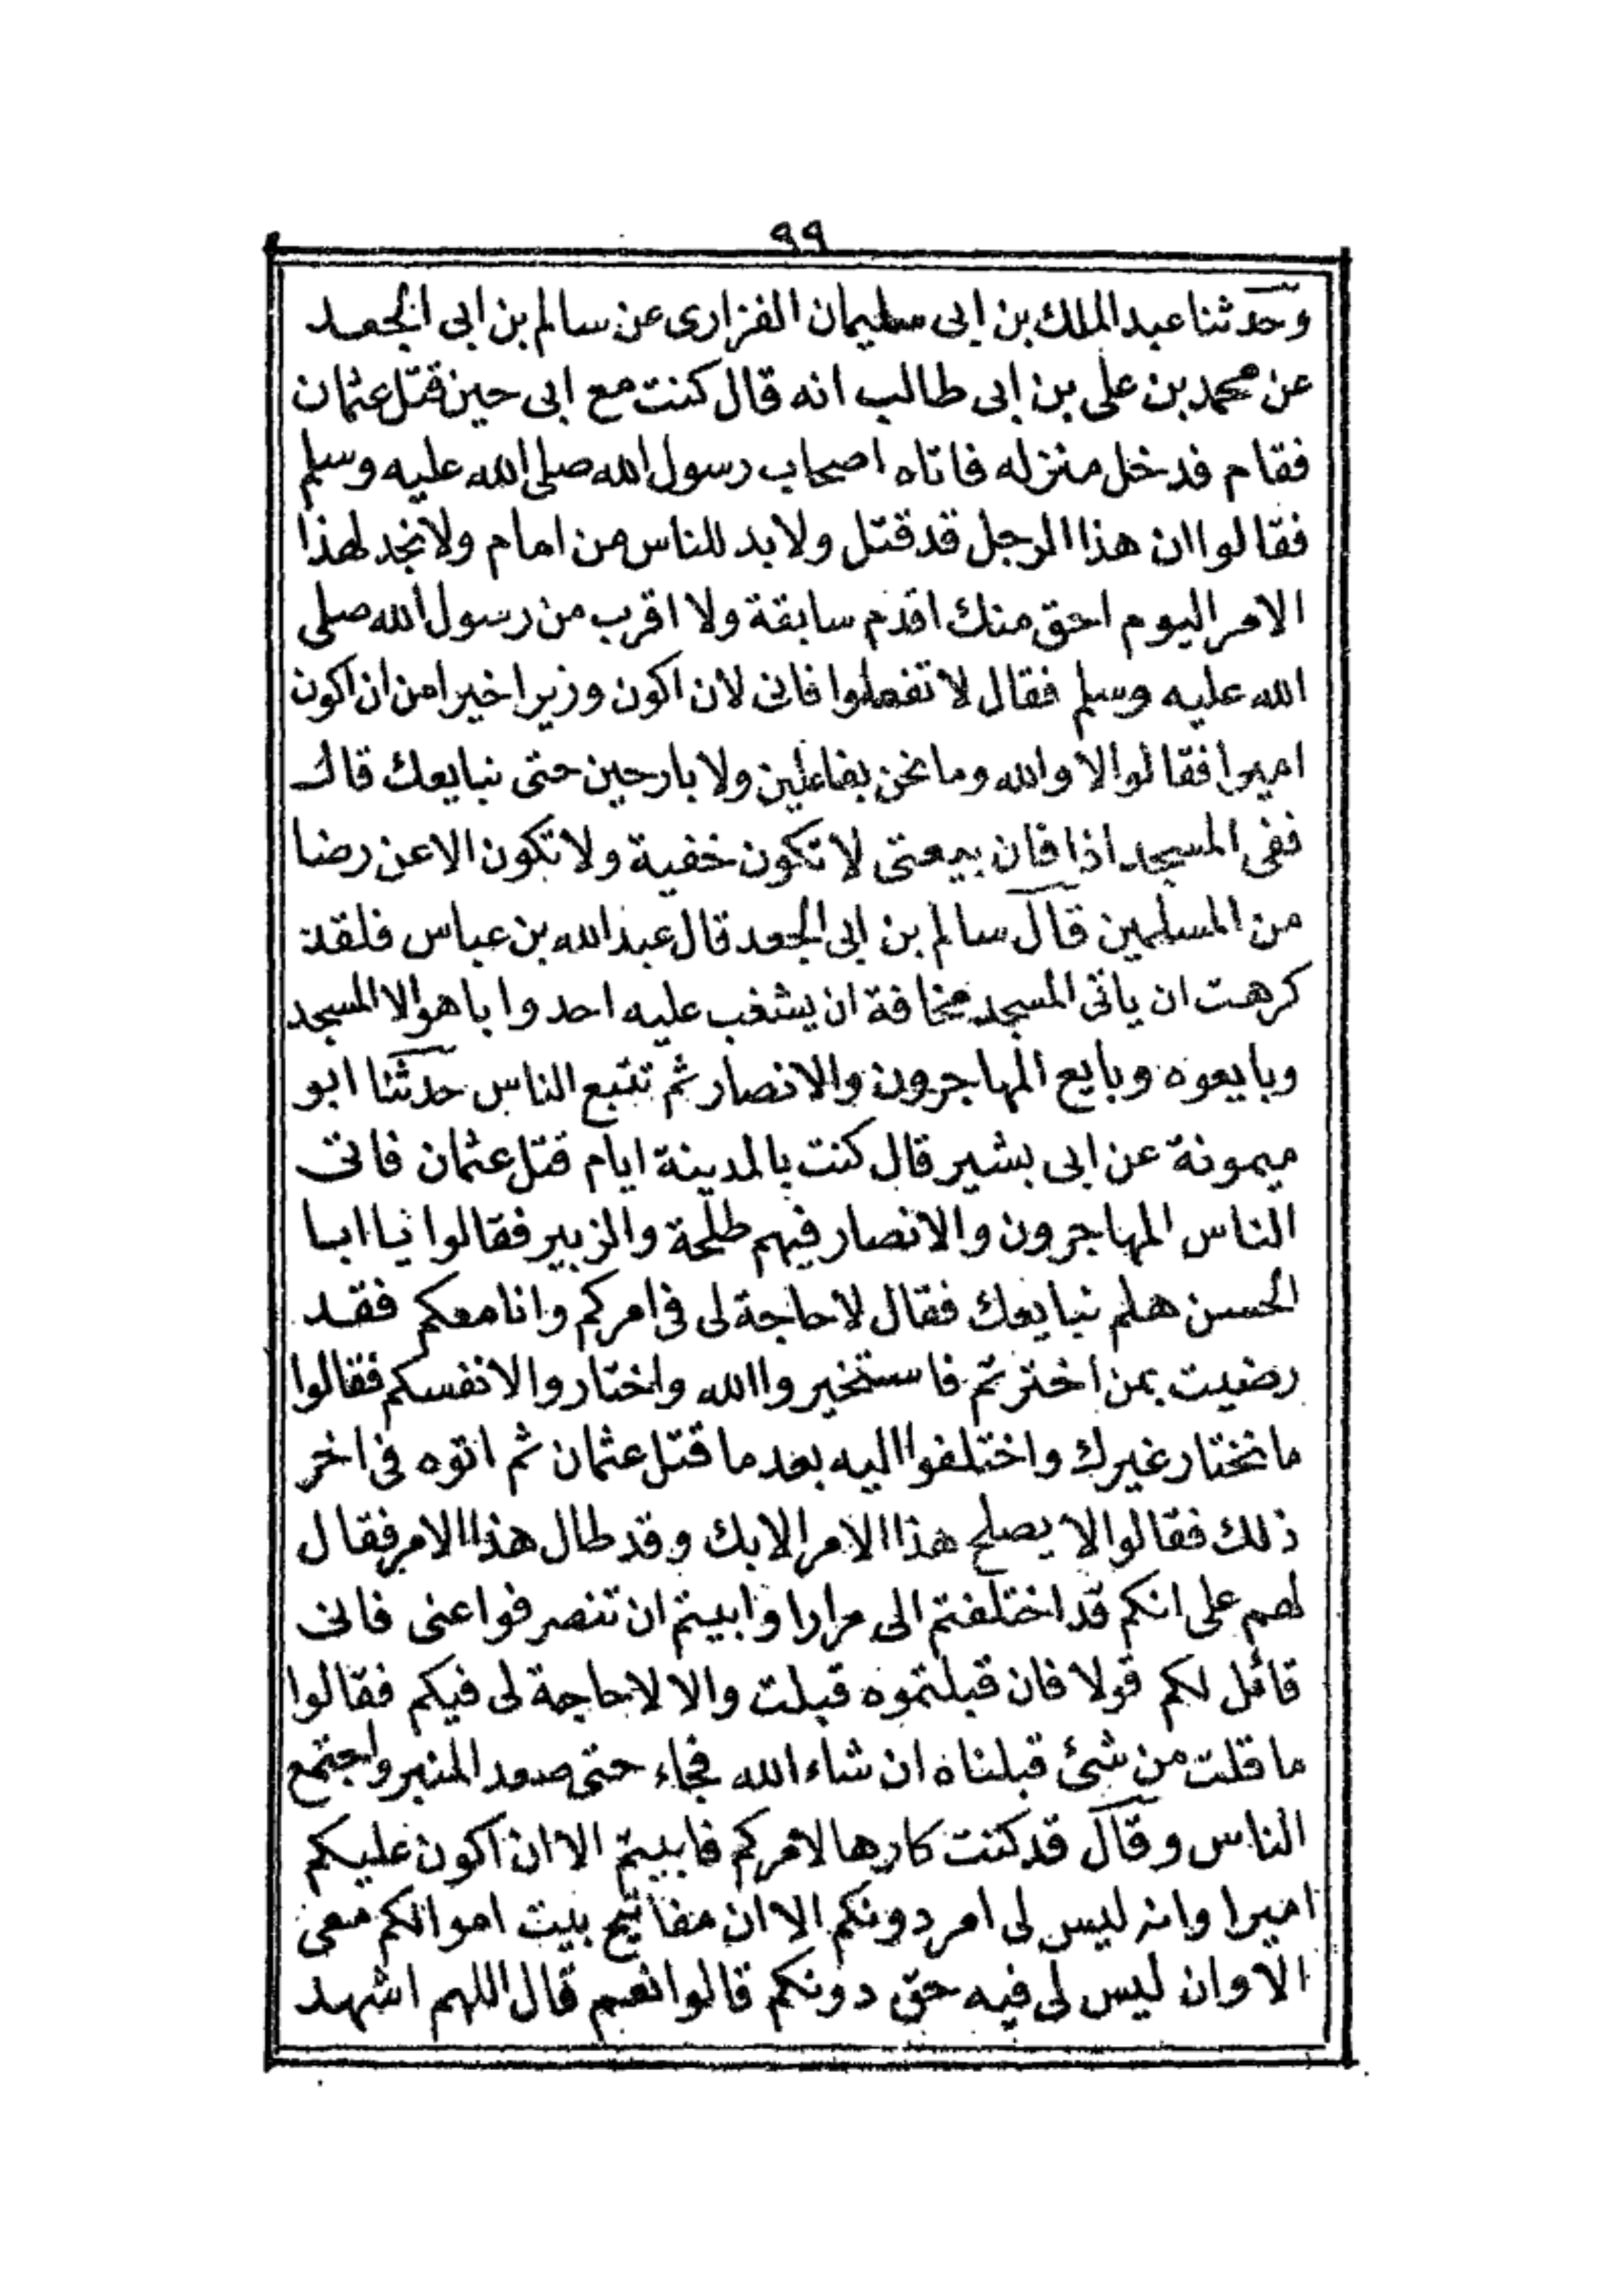 ٩٩
وحدثنا عبد الملك بن ابى سليمان الفزارى عن سالم بن ابى الجعد
عن محمد بن على بن ابى طالب انه قال كنت مع ابى حين قتل عثمان
فقام فدخل منزله فاتاه اصحاب رسول الله صلى الله عليه وسلم
فقالوا ان هذا الرجل قد قتل ولا بد للناس من امام ولا نجد لهذا
الامر اليوم احق منك اقدم سابقة ولا اقرب من رسول الله صلى
الله عليه وسلم فقال لا تفعلوا فانى لان اكون وزيرا خيرا من ان اكون
اميرا فقالوا لا والله وما نحن بفاعلين ولا بارحين حتى نبايعك قال
ففى المسجد اذا فان بيعتى لا تكون خفية ولا تكون الا عن رضا
من المسلمين قال سالم بن ابى الجعد قال عبد الله بن عباس فلقد
كرهت ان ياتى المسجد مخافة ان يشغب عليه احد وابا هو الا المسجد
وبايعوه وبايع المهاجرون والانصار ثم تتبع الناس حدثنا ابو
ميمونة عن ابى بشير قال كنت بالمدينة ايام قتل عثمان فاتى
الناس المهاجرون والانصار فيهم طلحة والزبير فقالوا يا ابا
الحسن هلم نبايعك فقال لا حاجة لى فى امركم وانا معكم فقد
رضيت بمن اخترتم فاستخيروا الله واختاروا لانفسكم فقالوا
ما نختار غيرك واختلفوا اليه بعد ما قتل عثمان ثم اتوه فى اخر
ذلك فقالوا لا يصلح هذا الامر الا بك وقد طال هذا الامر فقال
لهم على انكم قد اختلفتم الى مرارا وابيتم ان تنصرفوا عنى فانى
قائل لكم قولا فان قبلتموه قبلت والا لا حاجة لى فيكم فقالوا
ما قلت من شئ قبلناه ان شاء الله فجاء حتى صعد المنبر واجتمع
الناس وقال قد كنت كارها لامركم فابيتم الا ان اكون عليكم
اميرا وانه ليس لى امر دونكم الا ان مفاتيح بيت اموالكم معى
الا وان ليس لى فيه حق دونكم قالوا نعم قال اللهم اشهد